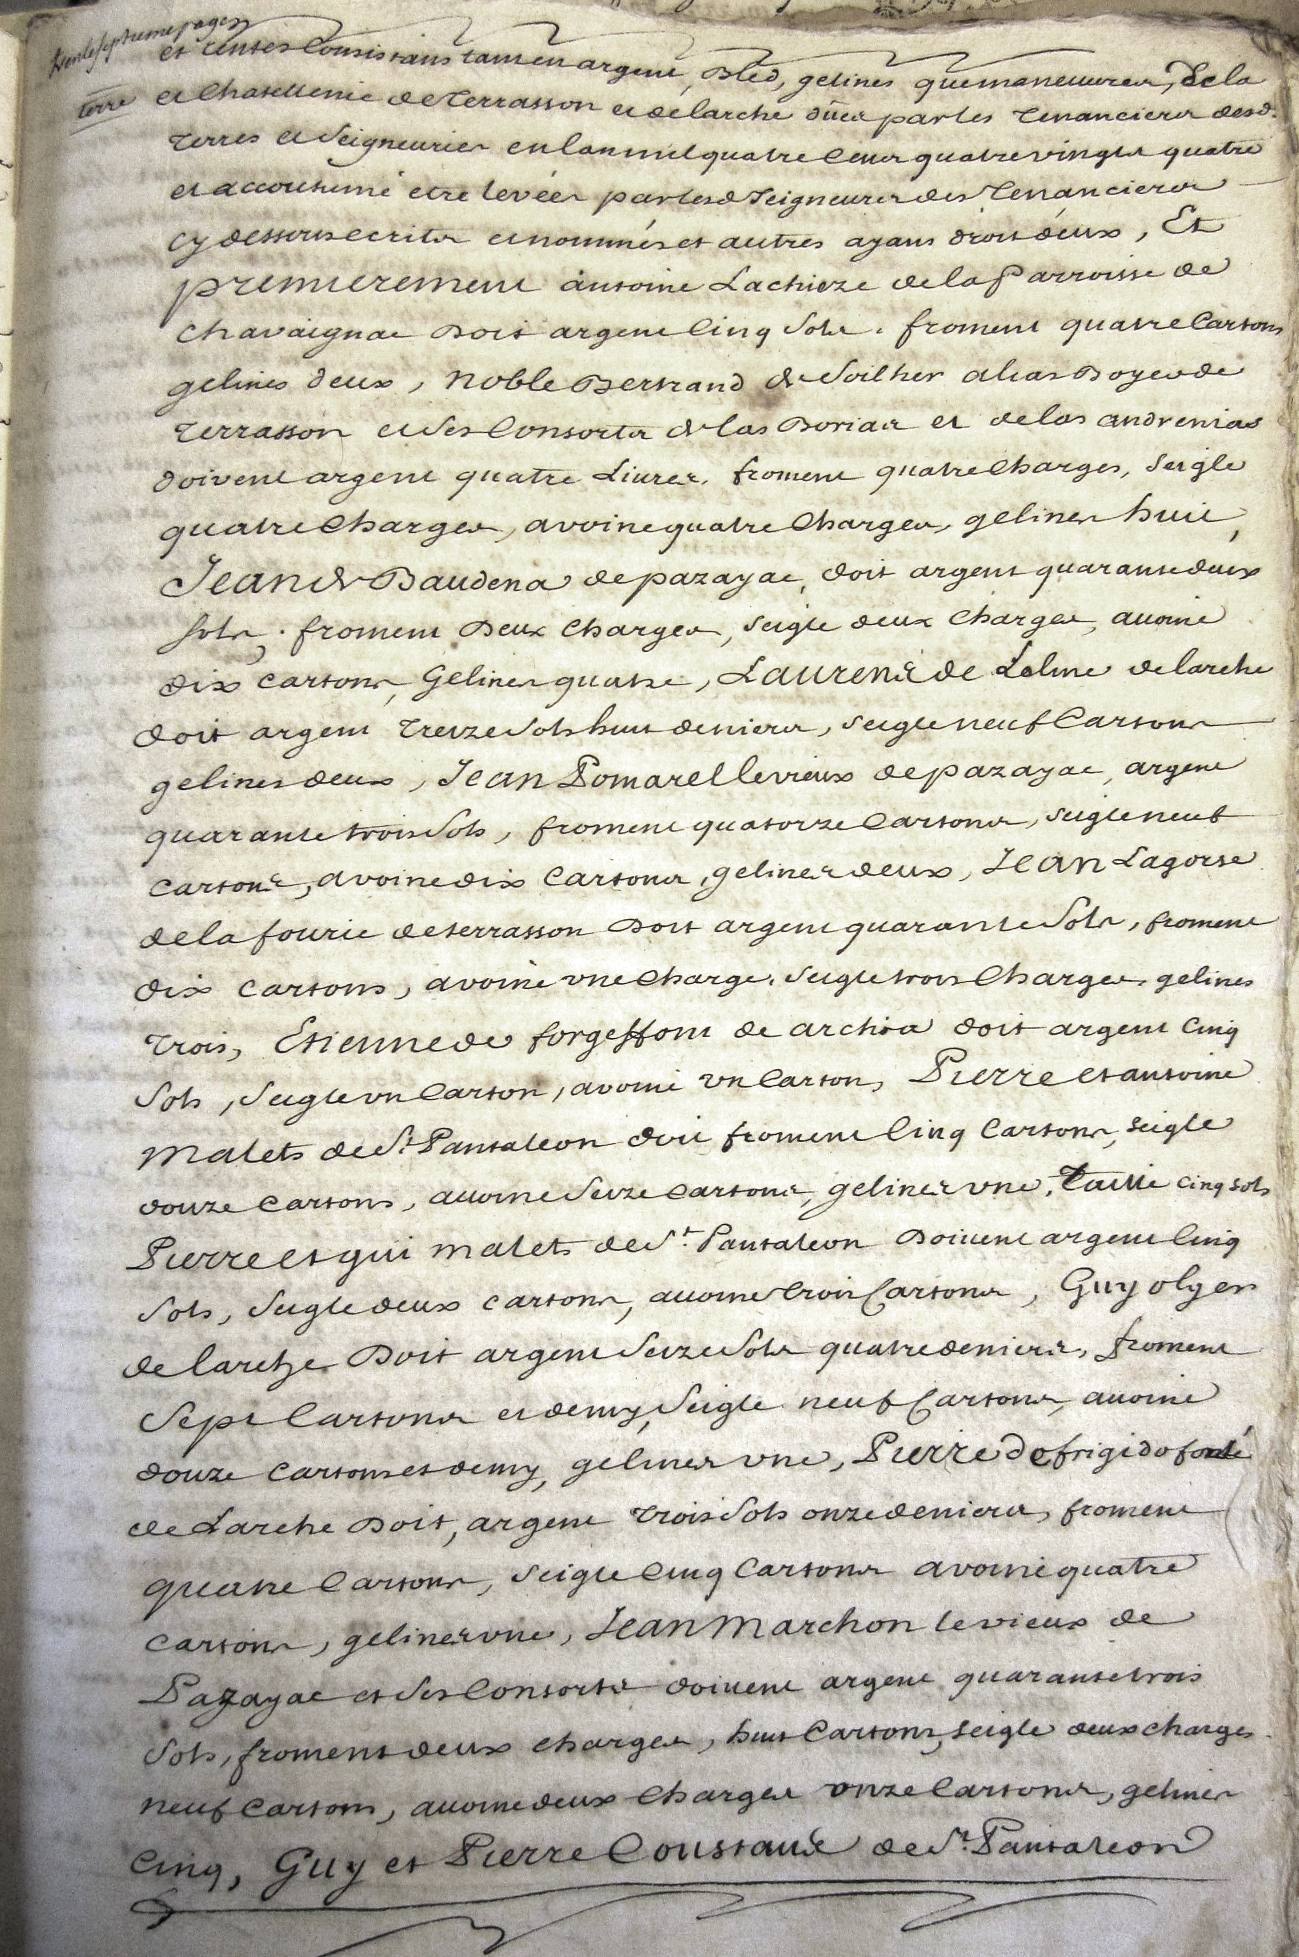 trente septieme page
et censes consistans tant en argent, bled, gelines que maneuvres, de la
terre et Chatellenie de Terrasson et de larche dües par les Tenanciers desd.
Terres et Seigneuries en lan mil quatre Cens quatre vingts quatre
et accoutumé etre levées par lesd Seigneurs des Tenanciers
cy dessous ecrits et nommés et autres ayans droit d'eux, Et
premierement antoine Lachieze de la Parroisse de
Chavaignac Doit argent Cinq Sols. froment quatre Cartons
gelines deux, noble Bertrand de Soilher alias Boyer de
Terrasson et Ses Consorts de las Borias et de las andrenias
doivent argent quatre Livres. froment quatre Charges, Seigle
quatre Charges, avoine quatre Charges, gelines huit,
Jean de Baudena de pazayac, doit argent quarante deux
Sols, froment Deux Charges, Seigle deux Charges, avoine
dix cartons, Gelines quatre, Laurent de Lolme de larche
doit argent Treize Sols huit deniers, Seigle neuf Cartons
gelines deux, Jean Pomarel le vieux de pazayac, argent
quarante trois Sols, froment quatorze Cartons, Seigle neuf
Cartons, avoine dix Cartons, gelines deux, Jean Lagorse
de la fourie de terrasson Doit argent quarante Sols, froment
dix cartons, avoine vne Charge. Seigle trois Charges. gelines
Trois, Etienne de forgessont de archia doit argent Cinq
Sols, Seigle vn Carton, avoine vn Carton, Pierre et antoine
malets de St Pantaleon doit froment Cinq Cartons, Seigle
douze Cartons, avoine Seize Cartons, gelines vne, Taille cinq sols
Pierre et gui malets de St. Pantaleon Doivent argent Cinq
Sols, Seigle deux cartons, avoine trois Cartons, Guy olger
de larche Doit argent Seize Sols quatre deniers, froment
Sept Cartons et demy, Seigle neuf Cartons, avoine
douze Cartons et demy, gelines vne, Pierre de frigido fonte
de Larche Doit, argent Trois Sols onze deniers, froment
quatre Cartons, Seigle Cinq Cartons avoine quatre
cartons, gelines vne, Jean Marchon le vieux de
Pazayac et Ses Consorts doivent argent quarante trois
Sols, froment deux charges, huit Cartons, Seigle deux charges
neuf Cartons, avoine deux Charges onze Cartons, gelines
Cinq, Guy et Pierre Coustaux de St. Pantaleon